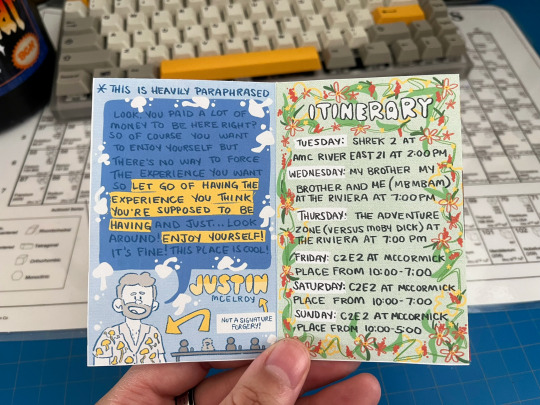 * THIS IS HEAVILY PARAPHRASED
LOOK, YOU PAID A LOT OF
MONEY TO BE HERE, RIGHT?
SO OF COURSE YOU WANT
TO ENJOY YOURSELF BUT
THERE'S NO WAY TO FORCE
THE EXPERIENCE YOU WANT
SO LET GO OF HAVING THE
EXPERIENCE YOU THINK
YOU'RE SUPPOSED TO BE
HAVING AND JUST... LOOK
AROUND! ENJOY YOURSELF!
IT'S FINE! THIS PLACE IS COOL!
JUSTIN
MCELROY
NOT A SIGNATURE
FORGERY!
ITINERARY
TUESDAY: SHREK 2 AT
AMC RIVER EAST 21 AT 2:00 PM
WEDNESDAY: MY BROTHER MY
BROTHER AND ME (MBMBAM)
AT THE RIVIERA AT 7:00 PM
THURSDAY: THE ADVENTURE
ZONE (VERSUS MOBY DICK) AT
THE RIVIERA AT 7:00 PM
FRIDAY: C2E2 AT MCCORMICK
PLACE FROM 10:00-7:00
SATURDAY: C2E2 AT MCCORMICK
PLACE FROM 10:00-7:00
SUNDAY: C2E2 AT MCCORMICK
PLACE FROM 10:00-5:00